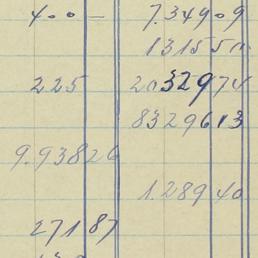 400 — 7.349 09
1315 50
225 20329 74
8329613
9.938 26
1.289 40
271 87